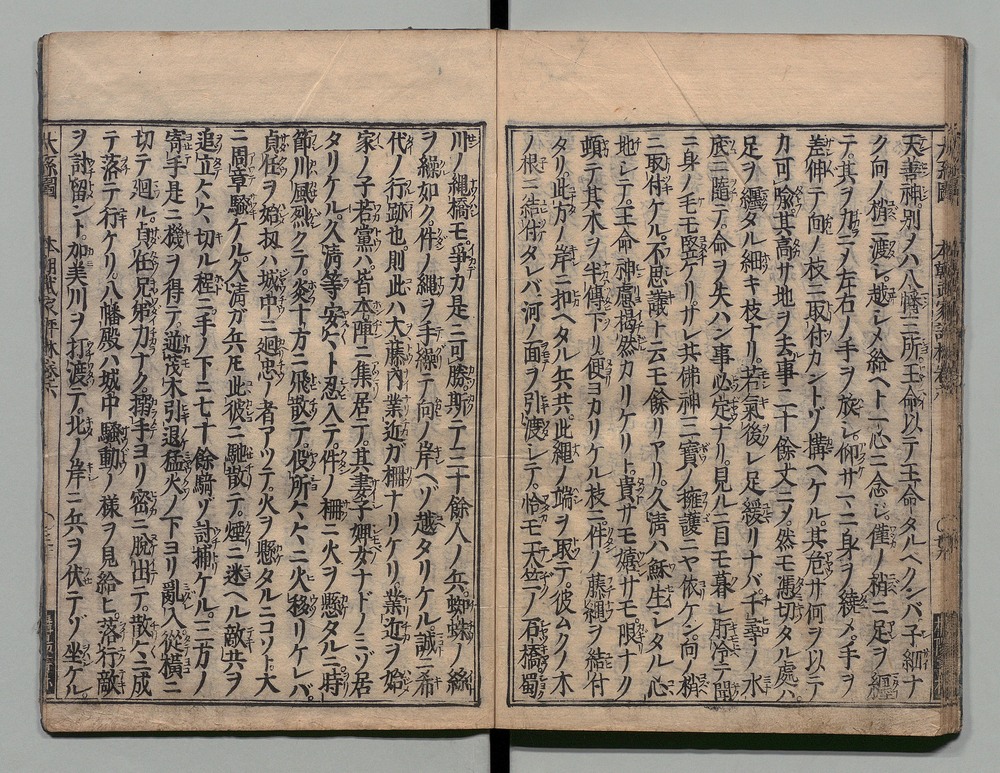 天善神別メハ八幡三所王命以テ王命タルヘクンバ子細ナ
ク向ノ梢ニ渡シ越シメ給ヘト一心ニ念シ僅ノ梢ニ足ヲ纒
テ其ヲ力ニメ左右ノ手ヲ放シ仰サマニ身ヲ繞メ手ヲ
差伸テ向ノ枝ニ取付カントゾ構ヘケル其危サ何ヲ以テ
カ可喩其高サ地ヲ去事二十餘丈ニメ然モ憑切タル處ハ
足ヲ纒タル細キ枝ナリ若氣後レ足緩リナバ千尋ノ水
底ニ隨テ命ヲ失ハン事必定ナリ見ルニ目モ暮レ肝冷テ聞
ニ身ノ毛モ竪ケリサレ共佛神三寶ノ擁護ニヤ依ケン向ノ梢
ニ取付ケル不思議ト云モ餘リアリ久淸ハ穌生シタル心
地シテ王命神慮掲然カリケリト貴サモ嬉サモ限ナク
頓テ其木ヲ半傳下リ便ヨカリケル枝ニ件ノ藤縄ヲ結付
タリ此方ノ岸ニ扣ヘタル兵共此縄ノ端ヲ取テ彼ムクノ木
ノ根ニ結付タレバ河ノ面ヲ引渡シテ恰モ天竺ノ石橋蜀
川ノ縄橋モ爭カ是ニ可勝斯テ二十餘人ノ兵蜘蛛ノ絲
ヲ繰如ク件ノ縄ヲ手操テ向ノ岸ヘゾ越タリケル誠ニ希
代ノ行跡也則此ハ大藤內業近ガ柵ナリケリ業近ヲ始
家ノ子若黨ハ皆本陣ニ集居テ其妻子婢女ナドノミゾ居
タリケル久淸等安々ト忍入テ件ノ柵ニ火ヲ懸タルニ時
節川風烈クテ炎十方ニ飛散テ役所々々ニ火移リケレバ
貞任ヲ始扨ハ城中ニ廻忠ノ者アツテ火ヲ懸タルニコソト大
ニ周章騷ケル久淸ガ兵𪜈此彼ニ馳散テ煙ニ迷ヘル敵共ヲ
追立々々切ル程ニ手ノ下ニ七十餘騎ゾ討捕ケル二方ノ
寄手是ニ機ヲ得テ逆茂木引退猛火ノ下ヨリ亂入從橫ニ
切テ廻ル貞任兄弟力ナク搦手ヨリ密ニ脫出テ散々ニ成
テ落テ行ケリ八幡殿ハ城中騷動ノ樣ヲ見給ヒ落行敵
ヲ討留ント加美川ヲ打渡テ北ノ岸ニ兵ヲ伏テゾ坐ケル